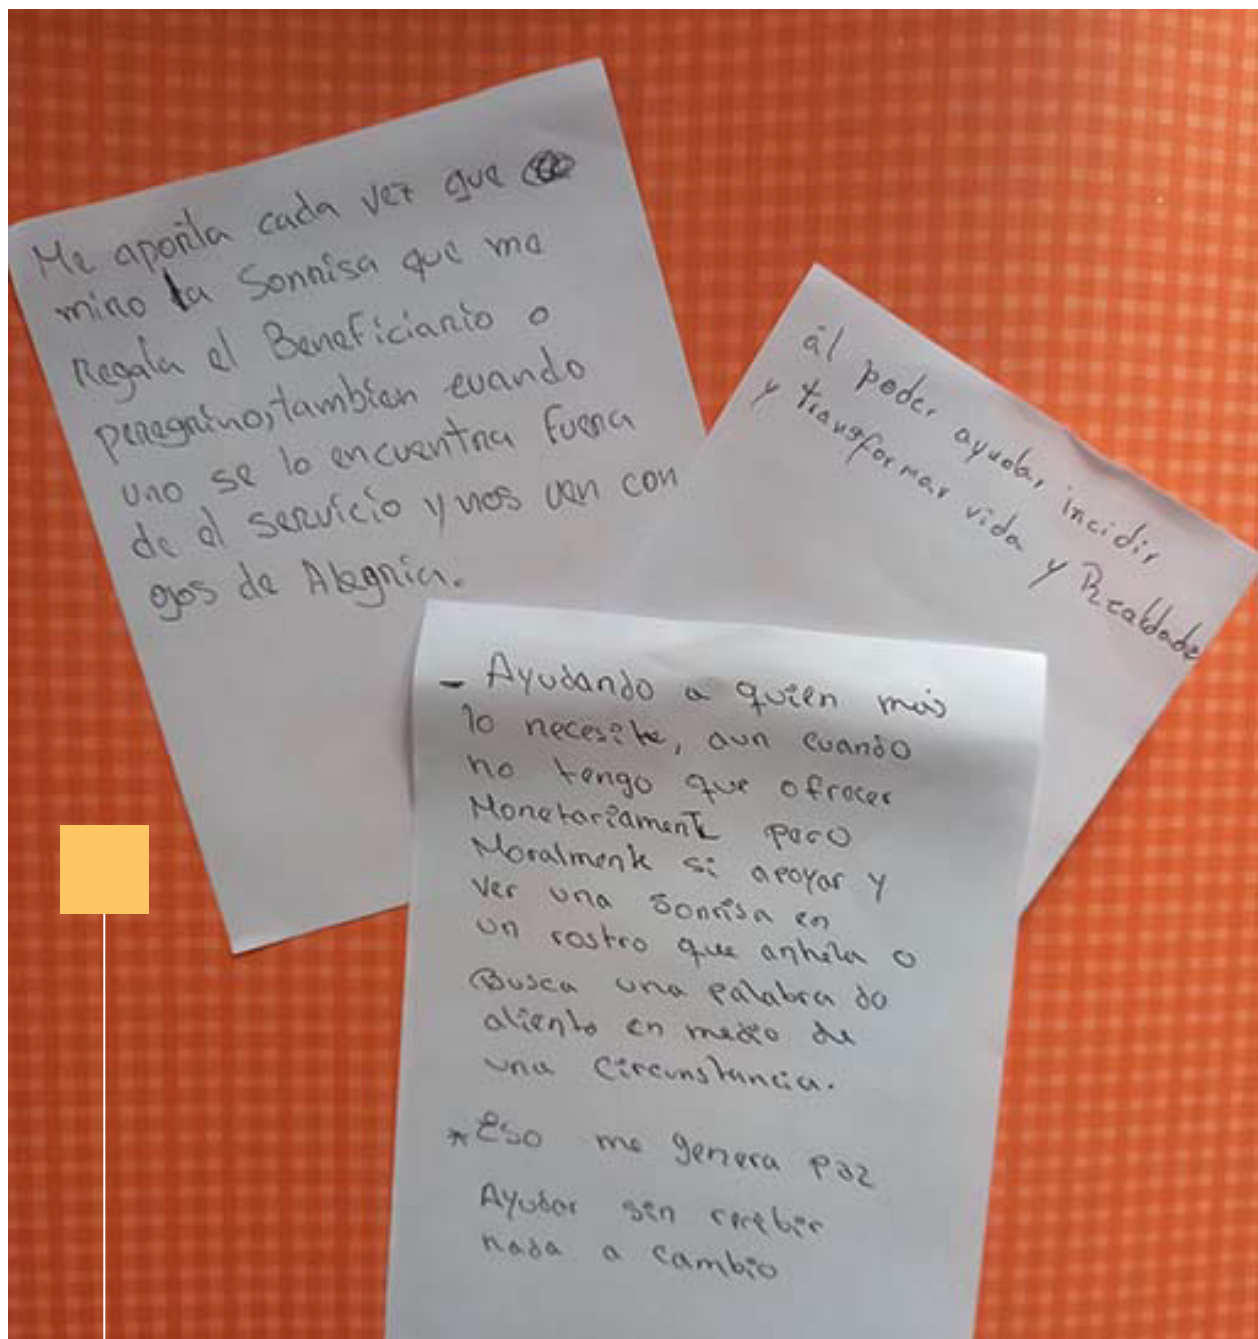 Me aporta cada vez que
miro la Sonrisa que me
Regala el Beneficiario o
peregrino, tambien cuando
uno se lo encuentra fuera
de el servicio y nos ven con
ojos de Alegria.
al poder ayudar, incidir
y transformar vida y Realidade
- Ayudando a quien más
lo necesite, aun cuando
no tengo que ofrecer
Monetariamente pero
Moralmente si apoyar y
ver una sonrisa en
un rostro que anhela o
Busca una palabra de
aliento en medio de
una circunstancia.
* Eso me genera paz
Ayudar sin recebir
nada a cambio